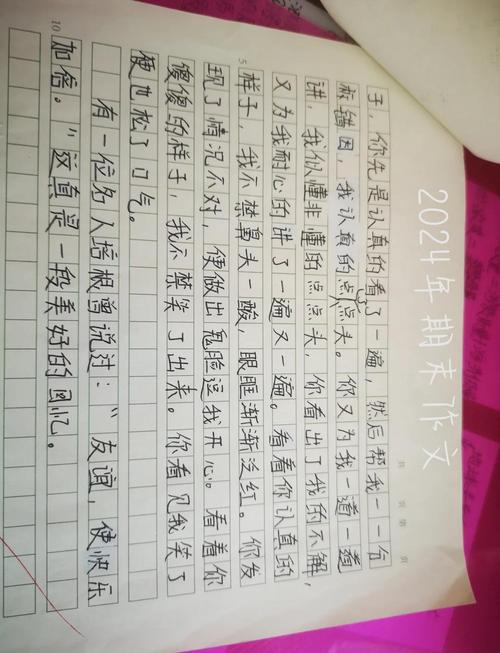 2024年期末作文
子，你先是认真的看了一遍，然后帮我一一分
析错因，我认真的点点头。你又为我一道一遍
讲，我似懂非懂的点点头，你看出了我的不解，
又为我耐心的讲了一遍又一遍。看着你认真的
样子，我不禁鼻头一酸，眼眶渐渐泛红。你发
现了情况不对，便做出鬼脸逗我开心。看着你
傻傻的样子，我不禁笑了出来。你看见我笑了
便也松了口气。
有一位名人培根曾说过："友谊，使快乐
加倍。"这真是一段美好的回忆。
5
10